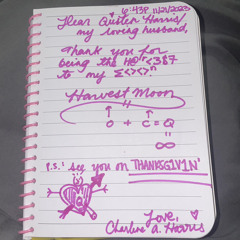 6:43P 11/21/2023
Dear Quister Harris,
my loving husband,
Thank you for
being the HE <3 87
to my Σ<><>"
Harvest Moon
"
O + C = Q
=
∞
P.S. I see you on THANKSG1V1N'
Q
Love,
Charlene A. Harris